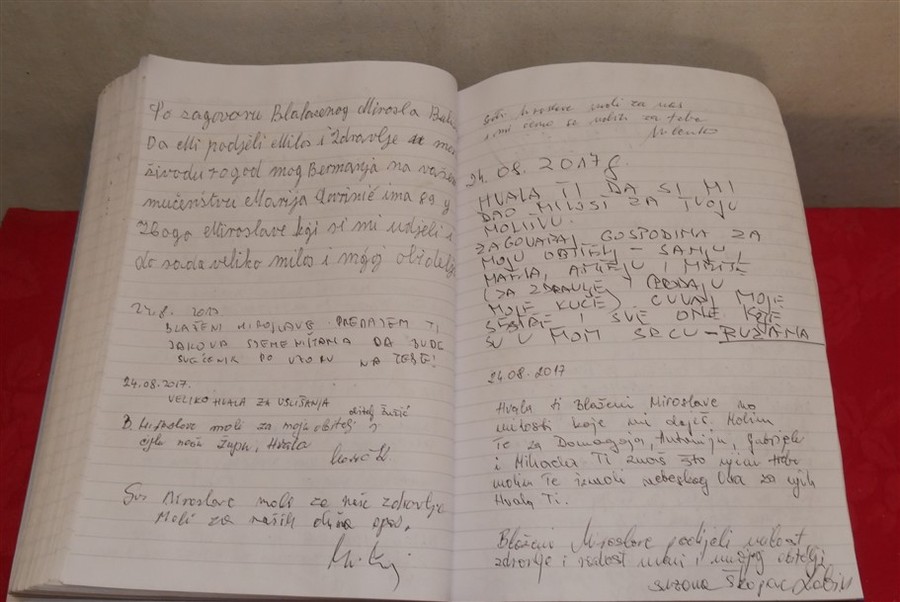 Po zagovaru Blaženog Mirosla
Da Mi podjeli Milos i Zdravlje
živodu rogod mog Bermanja na
mučeništvu Marija ima 89 g
Miroslave koji si mi udjeli i
do sada veliko milos i mojoj obitelji
24.8. 2017
BLAŽENI MIROSLAVE PREDAJEM TI
JAKOVA SJEMENIŠTANA DA BUDE
SVEĆENIK PO UZORU NA TEBE!
24.08.2017.
VELIKO HVALA ZA USLIŠANJA
obitelj Žužić
B. Miroslave moli za moju obitelj i
cijelu našu župu, Hvala
Miroslave moli za naše zdravlje
Moli za naših
Miroslave moli za nas
i mi ćemo se moliti za tebe
Milenko
24.08.2017g.
HVALA TI DA SI MI
DAO MILOST ZA TVOJU
MOLITVU.
ZAGOVARAJ GOSPODINA ZA
MOJU OBITELJ - SANJU,
MATIJA, I
(ZA ZDRAVLJE) I PRODAJU
MOJE KUĆE) ČUVAJ MOJE
SESTRE I SVE ONE KOJE
SU U MOM SRCU - RUŽAMA
24.08.2017
Hvala ti Blaženi Miroslave na
milosti koje mi daješ. Molim
Te za Domagoja, Antoniju, Gabrijela
i Mihaela Ti znaš što njim treba
molim Te izmoli nebeskog Oca za njih
Hvala Ti.
Blaženi Miroslave podijeli milost
zdravlje i radost meni i mojoj obitelji
Suzana Škopac